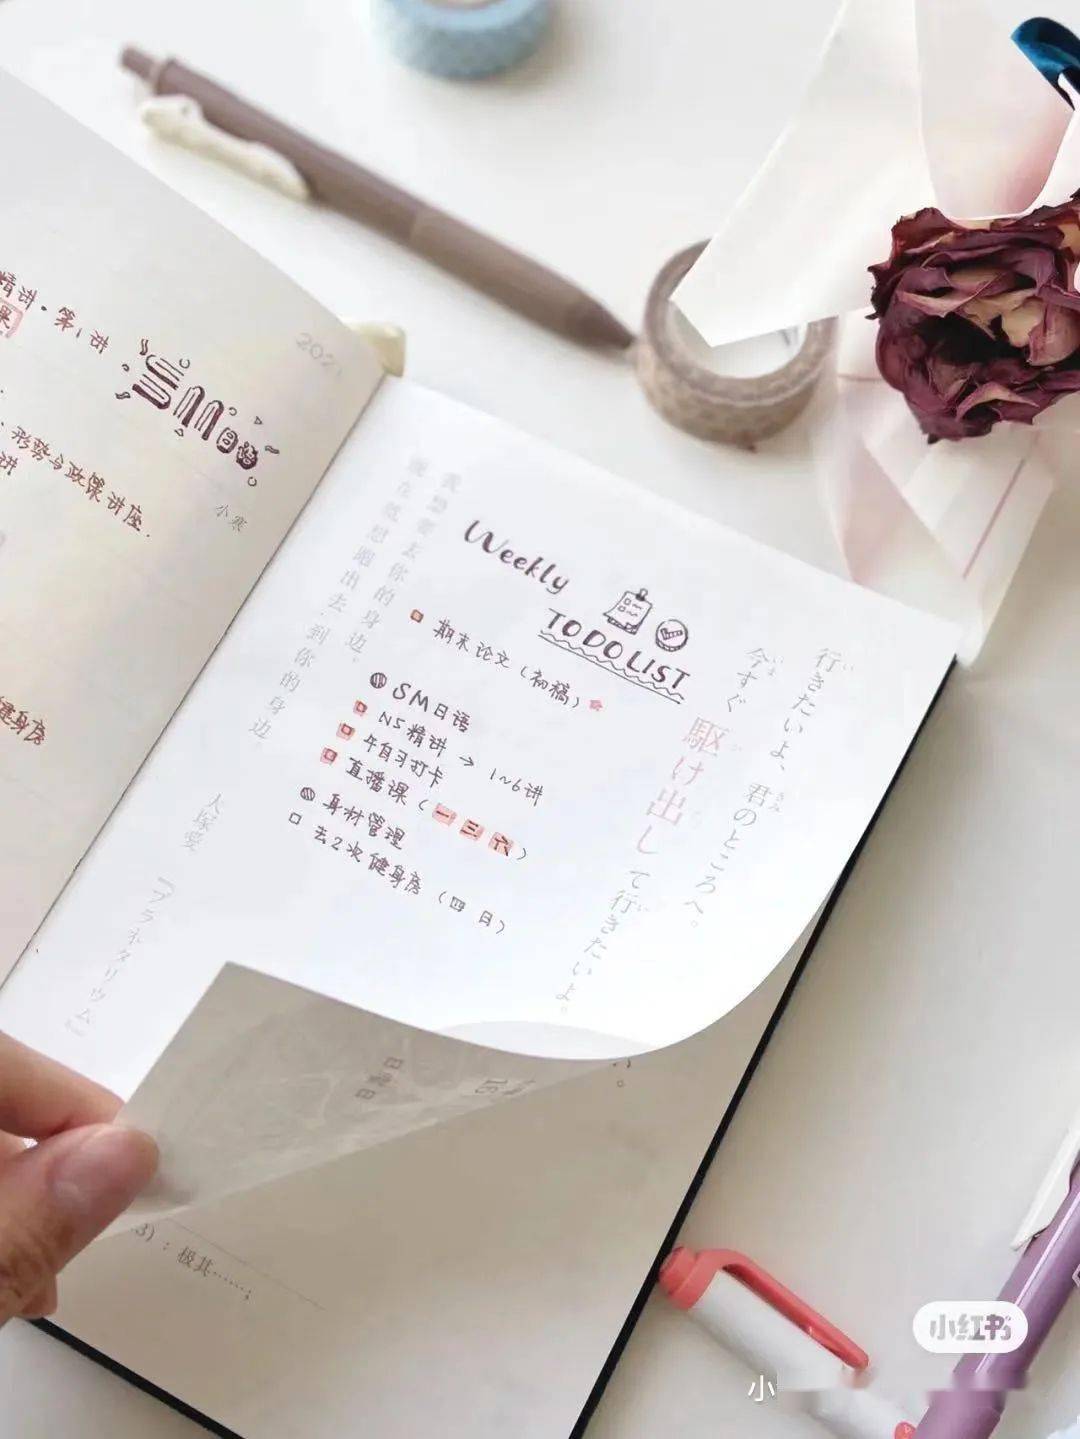 精讲·第1讲
课
2021
日语
小寒
、形势与政策讲座.
讲
健身房
Weekly
TO DO LIST
期末论文（初稿）
SM日语
N5精讲 → 1~6讲
午自习打卡
直播课（一 三 六）
身材管理
去2次健身房（四 日）
行きたいよ、君のところへ。
い
きみ
今すぐ駆け出して行きたいよ。
いま
か
い
我想要去你的身边。
现在就想跑出去，到你的身边。
大塚爱
『プラネタリウム』
日曜日
3）：极其……；
小红书
小